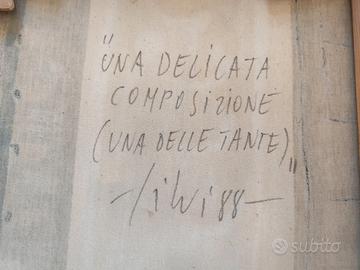 "UNA DELICATA
COMPOSIZIONE
(UNA DELLE TANTE)"
Silvi 88
subito